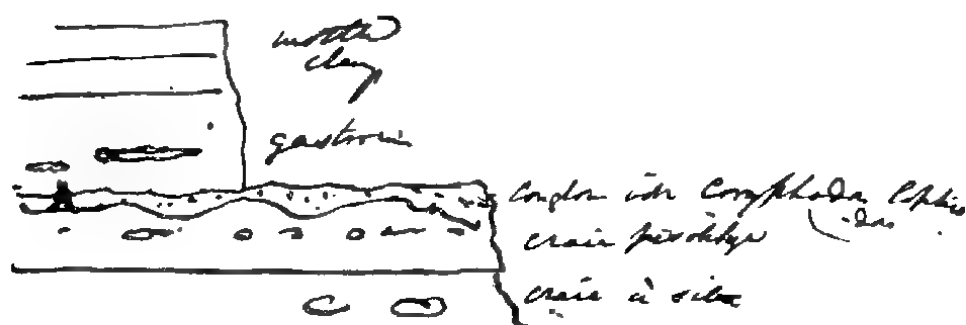 mottled
clay
gastornis
Conglom Coryphodon Lophio
-don
craie pisolitique
craie à silex